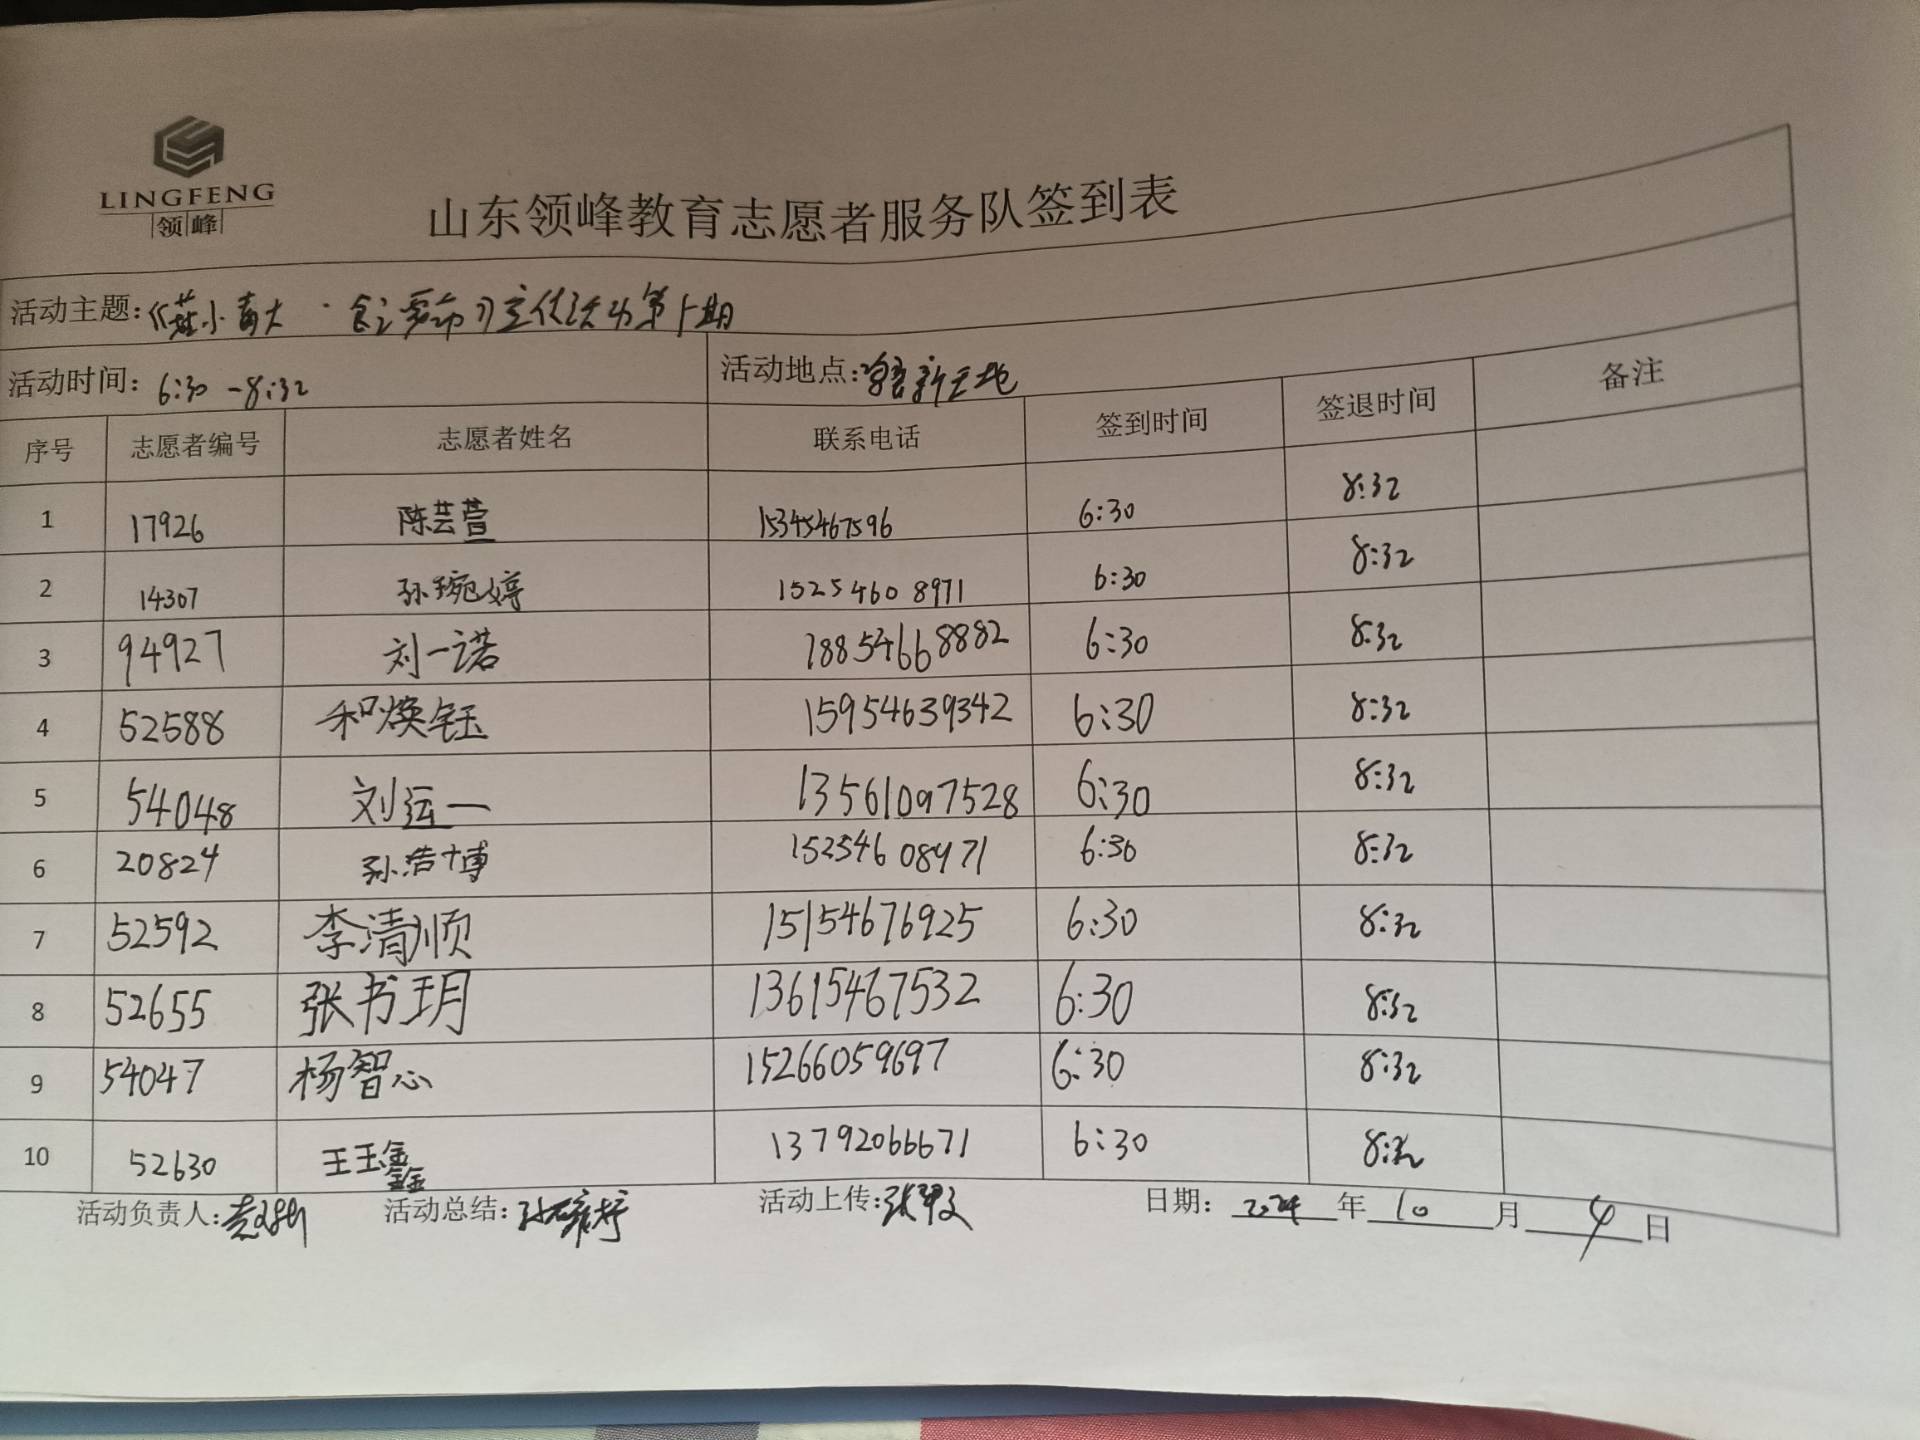 LINGFENG
领峰
山东领峰教育志愿者服务队签到表
活动主题:
活动时间: 6:30-8:32 活动地点: 新天地
序号 志愿者编号 志愿者姓名 联系电话 签到时间 签退时间 备注
1 17926 陈芸萱 15345467596 6:30 8:32
2 14307 孙琬婷 15254608971 6:30 8:32
3 94927 刘一诺 18854668882 6:30 8:32
4 52588 和焕钰 15954639342 6:30 8:32
5 54048 刘运一 13561097528 6:30 8:32
6 20824 孙浩博 15254608971 6:30 8:32
7 52592 李清顺 15154676925 6:30 8:32
8 52655 张书玥 13615467532 6:30 8:32
9 54047 杨智心 15266059697 6:30 8:32
10 52630 王玉鑫 13792066671 6:30 8:32
活动负责人: 活动总结: 活动上传: 日期: 2024 年 10 月 4 日